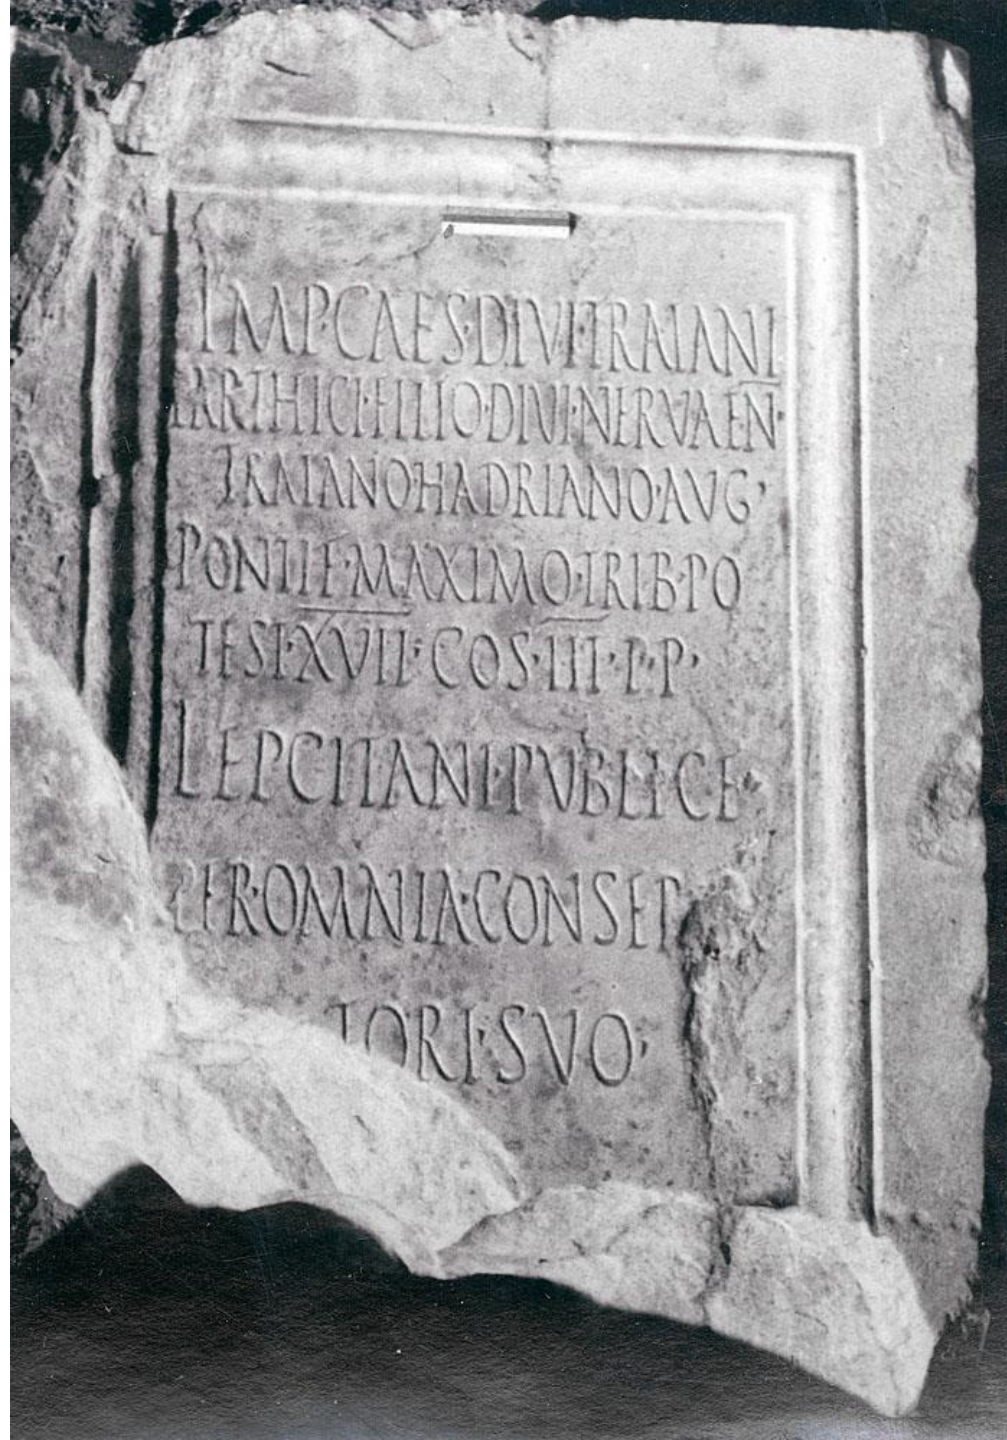 IMP·CAES·DIVI·TRAIANI
PARTHICI·FILIO·DIVI·NERVAE·N·
TRAIANO·HADRIANO·AVG·
PONTIF·MAXIMO·TRIB·PO
TEST·XVII·COS·III·P·P·
LEPCITANI·PVBLICE·
PER·OMNIA·CONSER
TORI·SVO·